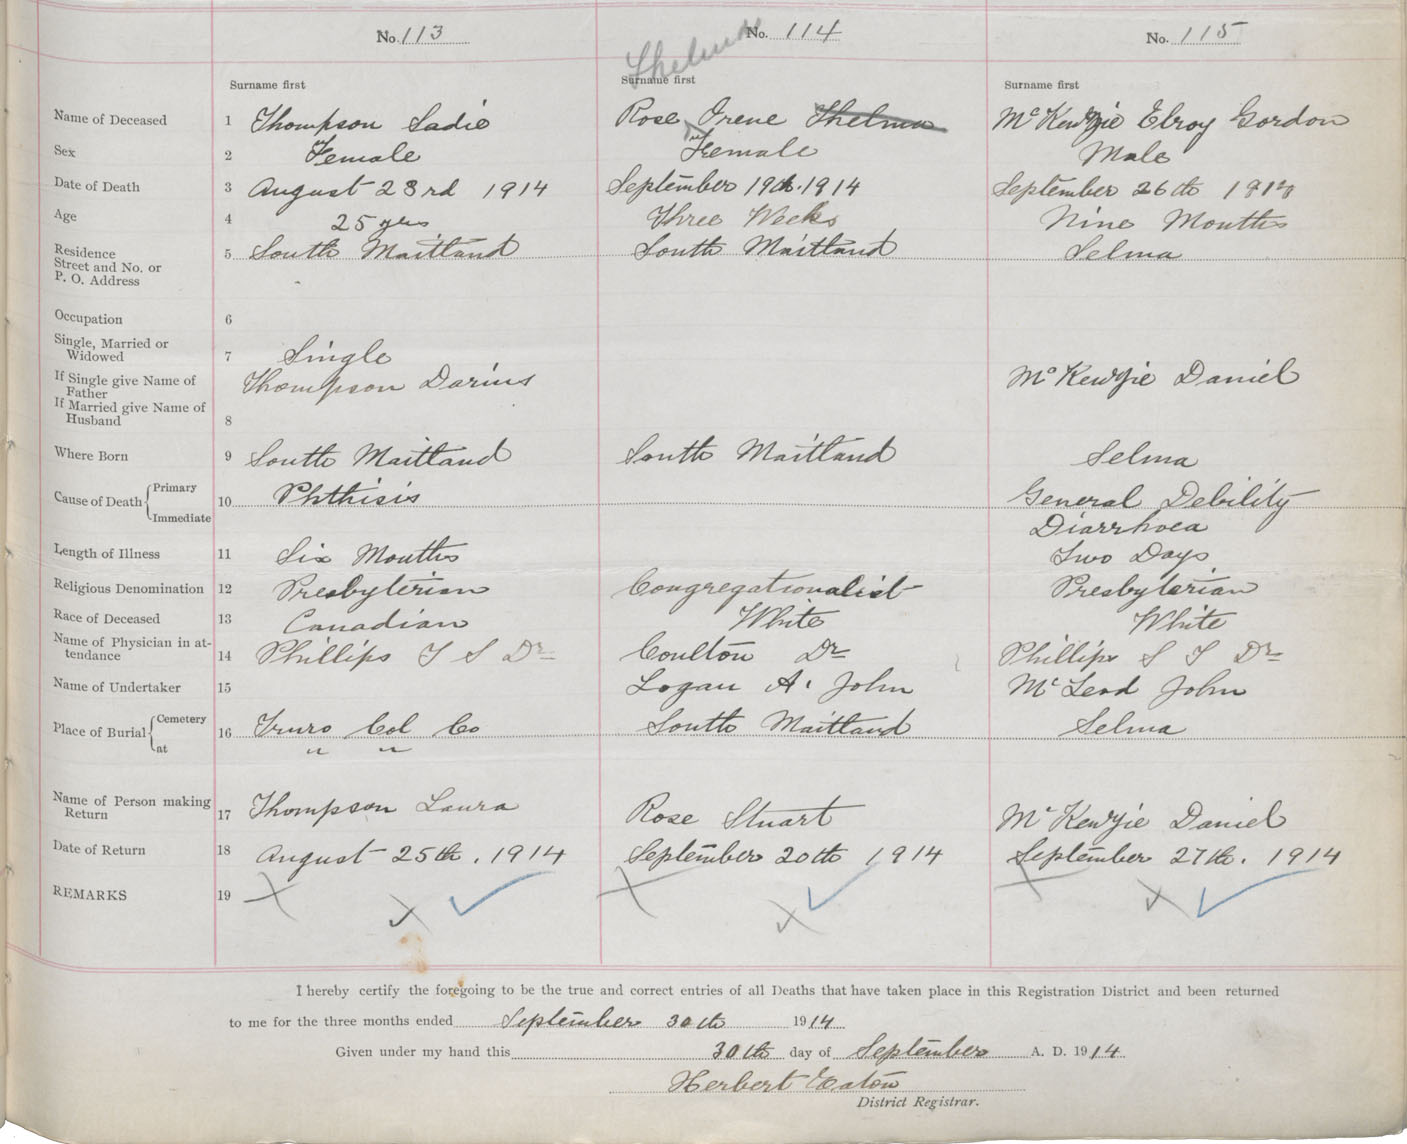 No. 113 No. 114 No. 115
Thelma
Surname first Surname first Surname first
Name of Deceased 1 Thompson Sadie Rose Irene Thelma McKenzie Elroy Gordon
Sex 2 Female Female Male
Date of Death 3 August 23rd 1914 September 19th. 1914 September 26th 1914
Age 4 25 yrs Three Weeks Nine Months
Residence 5 South Maitland South Maitland Selma
Street and No. or
P. O. Address
Occupation 6
Single, Married or
Widowed 7 Single
If Single give Name of Thompson Darius McKenzie Daniel
Father
If Married give Name of
Husband 8
Where Born 9 South Maitland South Maitland Selma
Cause of Death Primary 10 Phthisis General Debility
Immediate Diarrhoea
Length of Illness 11 Six Months Two Days
Religious Denomination 12 Presbyterian Congregationalist Presbyterian
Race of Deceased 13 Canadian White White
Name of Physician in at-
tendance 14 Phillips T S Dr Coulton Dr Phillips S T Dr
Name of Undertaker 15 Logan A. John McLeod John
Place of Burial Cemetery 16 Truro Col Co South Maitland Selma
at " "
Name of Person making
Return 17 Thompson Laura Rose Stuart McKenzie Daniel
Date of Return 18 August 25th. 1914 September 20th 1914 September 27th. 1914
REMARKS 19
I hereby certify the foregoing to be the true and correct entries of all Deaths that have taken place in this Registration District and been returned
to me for the three months ended September 30th 1914
Given under my hand this 30th day of September A. D. 1914
Herbert Eaton
District Registrar.